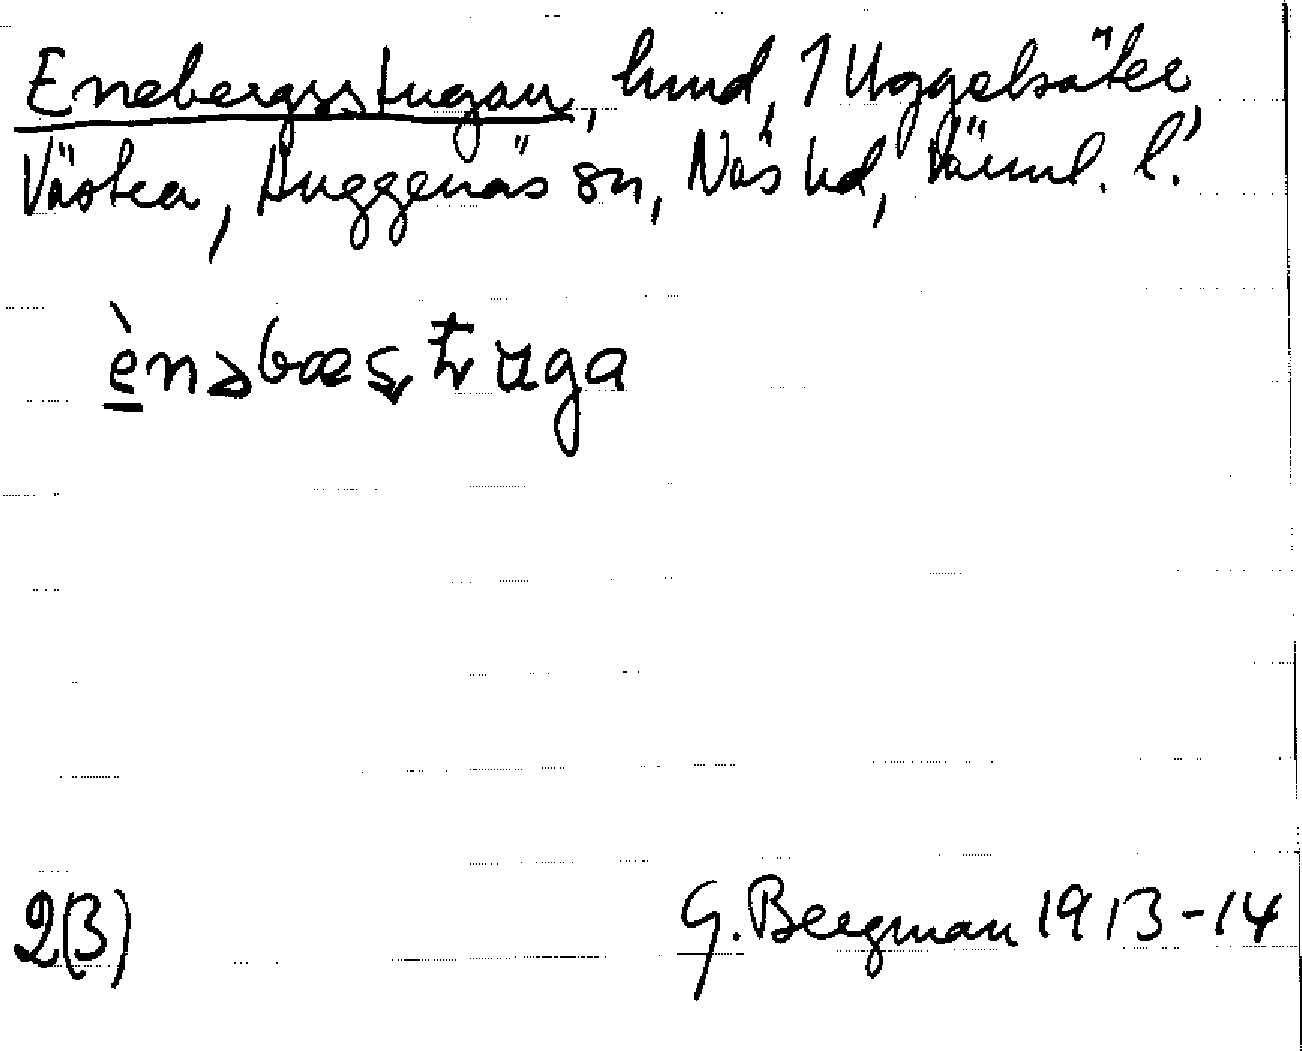 Enebergsstugan, hmd, 1 Uggelsäter
Västra, Huggenäs sn, Näs hd, Värml. l.
ènəbæʂʈʉga
2(3) G. Bergman 1913-14